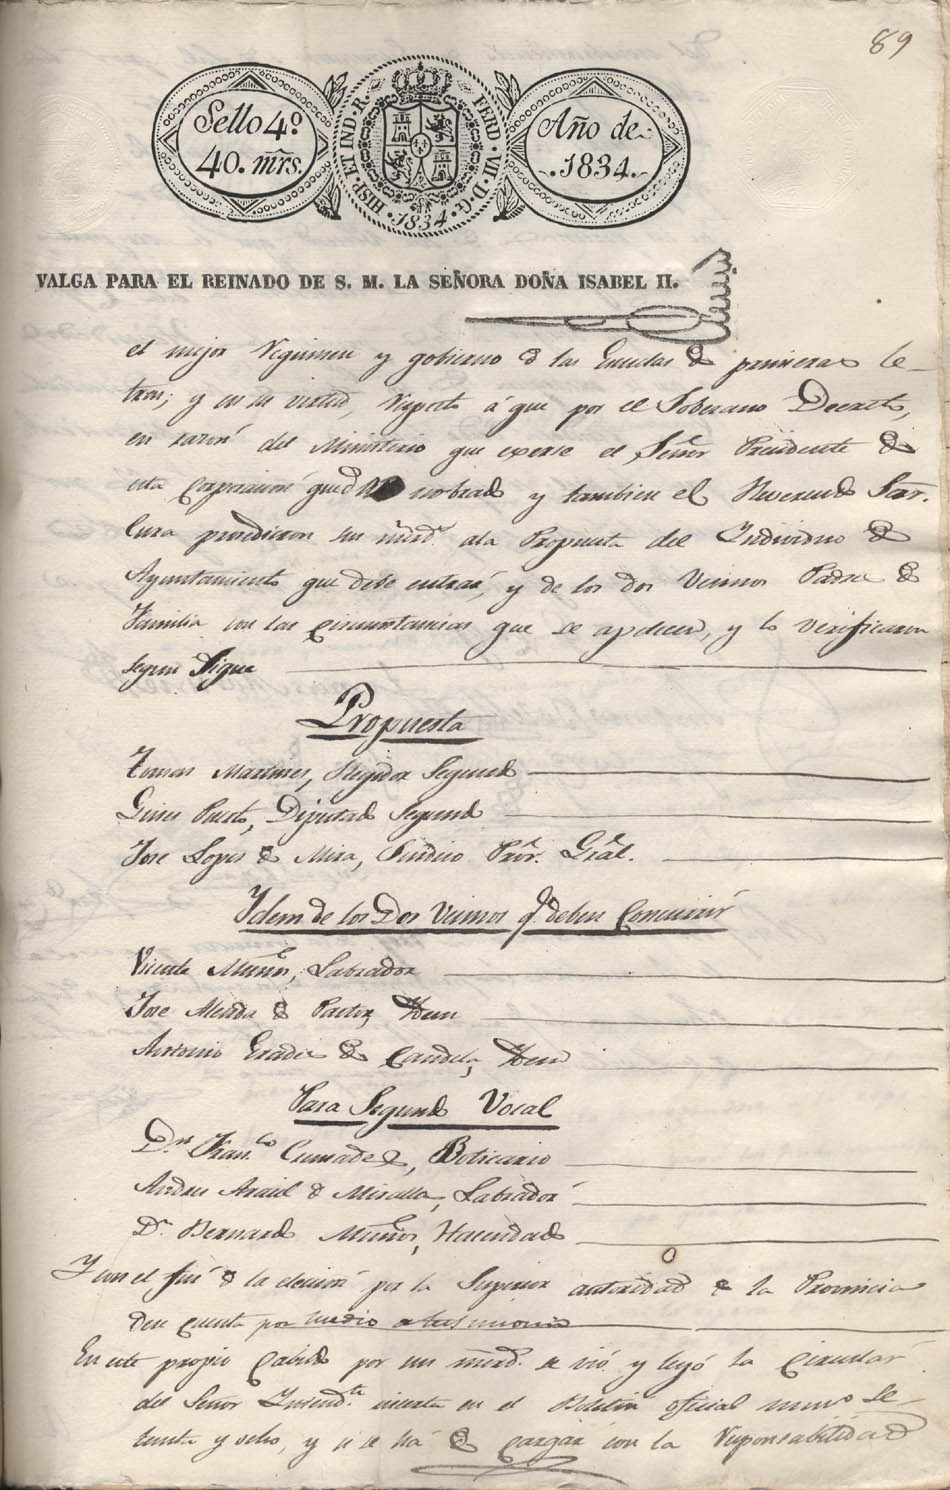 89
Sello 4º
40. mrs.
HISP. ET IND. R. FERD. VII. D. G.
1834
Año de
1834.
VALGA PARA EL REINADO DE S. M. LA SEÑORA DOÑA ISABEL II.
el mejor Reguimen y gobierno de las Escuelas de primeras le-
tras; y en su virtud, respecto á que por el Soberano Decreto,
en razon del Ministerio que exerse el Señor Presidente de
esta Corporacion quedó nobrado y tambien el Reverendo Sor.
Cura prosedieron sus mrds. ala Propuesta del Individuo de
Ayuntamiento que debe entrar, y de los dos Vecinos Padres de
Familia con las circunstancias que se apetecen, y lo verificaron
segun Sigue
Propuesta
Tomas Martines, Regidor Segundo
Gines Puerto, Diputado Segundo
Jose Lopes de Mira, Sindico Pror. Gral.
Idem de los Dos Vecinos qe. deben Concurrir
Vicente Muños, Labrador
Jose de Pastor, Idem
Antonio de Candela, Idem
Para Segundo Vocal
Dn. Franco. Boticario
Andres de Miralles, Labrador
Dn. Bernardo Muños, Hacendado
Y con el fin de la elecion por la Superior autoridad de la Provincia
den cuenta por medio
En este propio Cabildo por sus mrds. se vió, y leyó la Circular
del Señor Intendte. inserta en el Boletin oficial numo. se-
tenta y ocho, y si se há de Cargar con la Responsabilidad